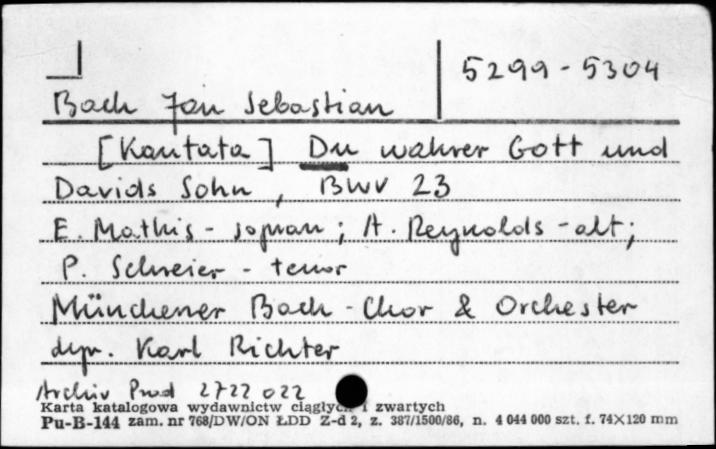 5299-5304
Bach Jan Sebastian
[Kantata] Du wahrer Gott und
Davids Sohn, BWV 23
E. Mathis - sopran; A. Reynolds - alt;
P. Schreier - tenor
Münchener Bach-Chor & Orchester
dyr. Karl Richter
Archiv Prod 2722 022
Karta katalogowa wydawnictw ciągłych i zwartych
Pu-B-144 zam. nr 768/DW/ON ŁDD Z-d 2, z. 387/1500/86, n. 4 044 000 szt. f. 74X120 mm